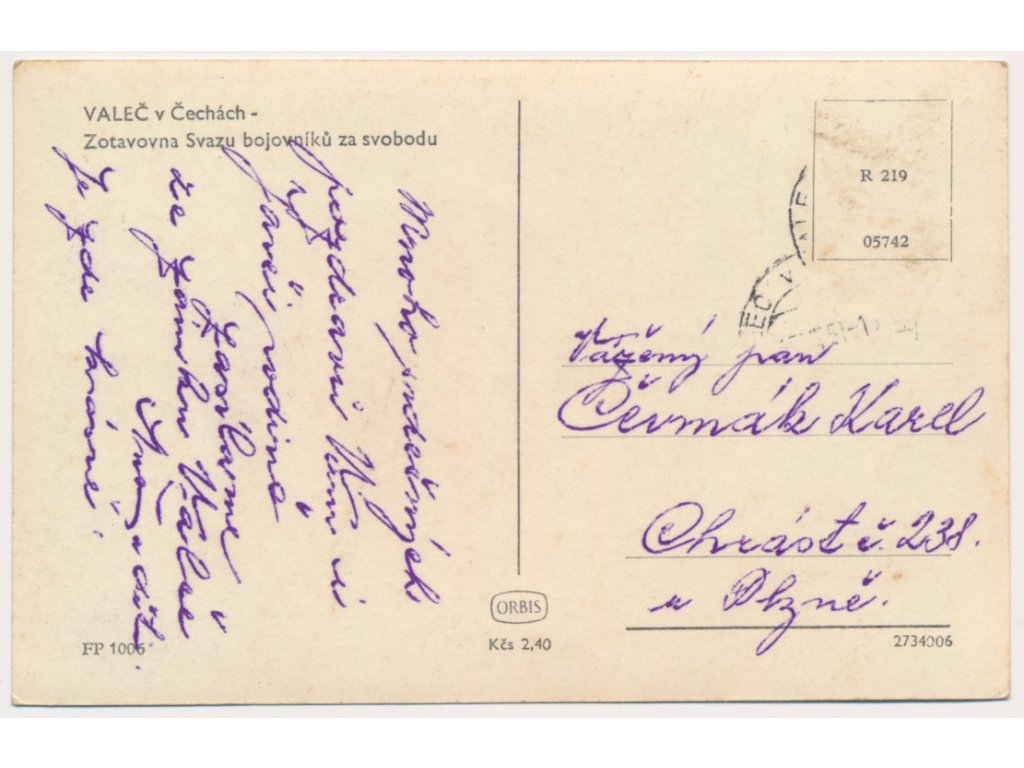 VALEČ v Čechách -
Zotavovna Svazu bojovníků za svobodu
Mnoho srdečných
pozdravů Vám i
Vaší rodině
zasíláme
ze zámku Valče
a dět.
Je zde krásně
R 219
05742
Vážený pan
Čermák Karel
Chrást č. 238.
u Plzně.
ORBIS
Kčs 2,40
FP 1006
2734006